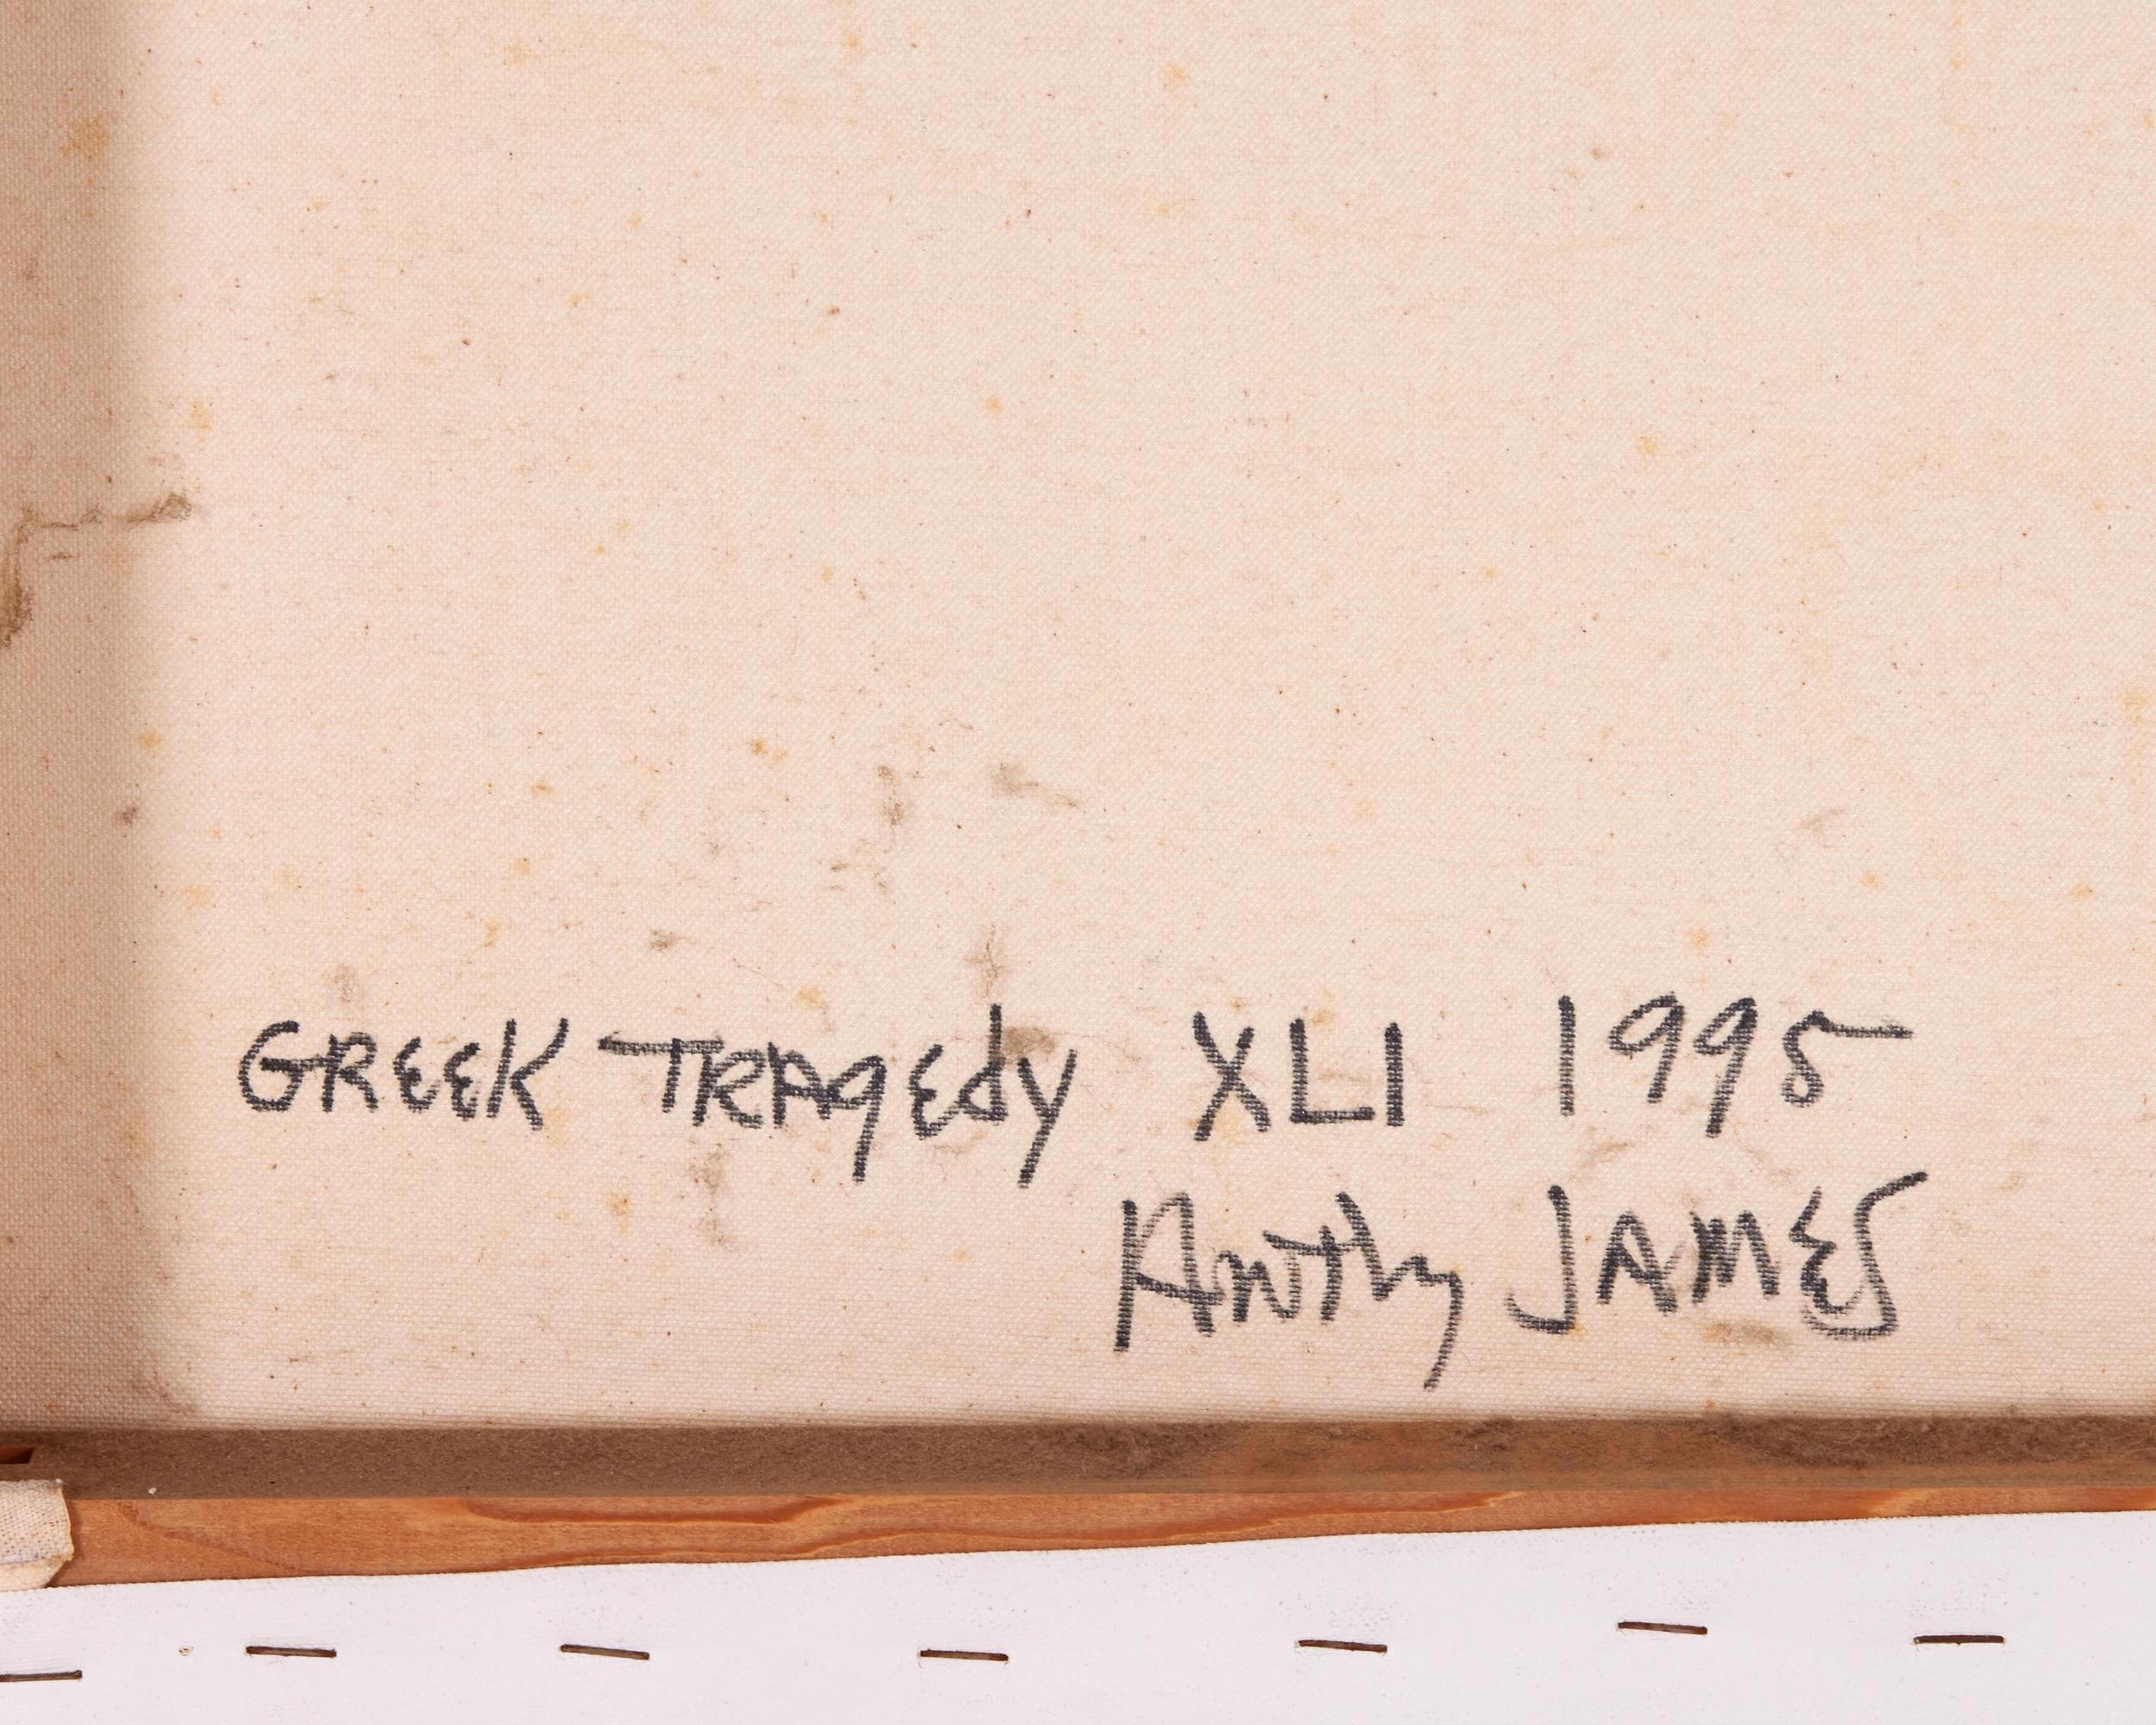 GREEK TRAgEdy XLI 1995
Anthy JAMES